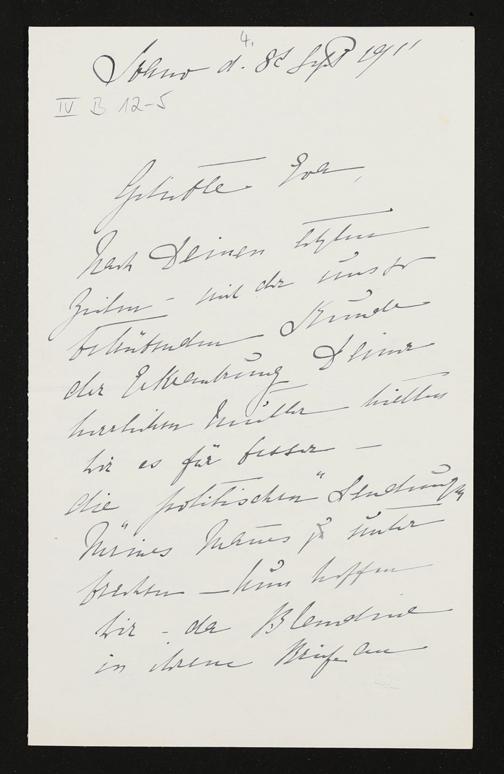 4.
d. 8t Sept 1911
IV B 12-5
Geliebte Eva,
Nach Deinen letzten
Zeilen – mit der uns so
betrübenden Kunde
der Erkrankung Deiner
herrlichen Mutter hielten
wir es für besser –
die „politischen" Sendungen
meines Mannes zu unter
brechen – nun hoffen
wir – da Blandine
in ihrem Briefe an